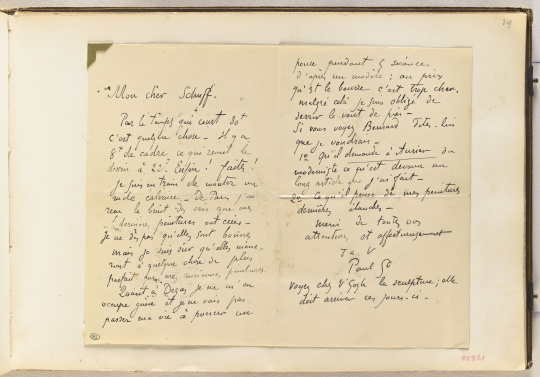 29
Mon cher Schuff.
Par le temps qui court 30f
c'est quelque chose - il y a
8f de cadre ce qui remet le
dessin à 22f. Enfin! faites!
Je suis en train de monter un
rude calvaire - De Paris j'ai
reçu le bruit des cris que mes
dernières peintures ont créés -
Je ne dis pas qu'elles sont bonnes
mais je suis sûr qu'elles mène-
ront à quelque chose de plus
parfait que mes anciennes peintures
Quant à Degas je ne m'en
occupe guère et je ne vais pas
passer ma vie à poncer un
pouce pendant 5 séances
d'après un modèle; au prix
qu'est le beurre c'est trop cher.
malgré cela je suis obligé de
serrer le vent de près -
Si vous voyez Bernard dites-lui
que je voudrais -
1o qu'il demande à Aurier du
moderniste ce qu'est devenu un
long article que j'ai fait -
2o Ce qu'il pense de mes peintures
dernières
merci de toutes vos
attentions et affectueusement
T. a V
Paul Go
Voyez chez V Gogh la sculpture; elle
doit arriver ces jours-ci -